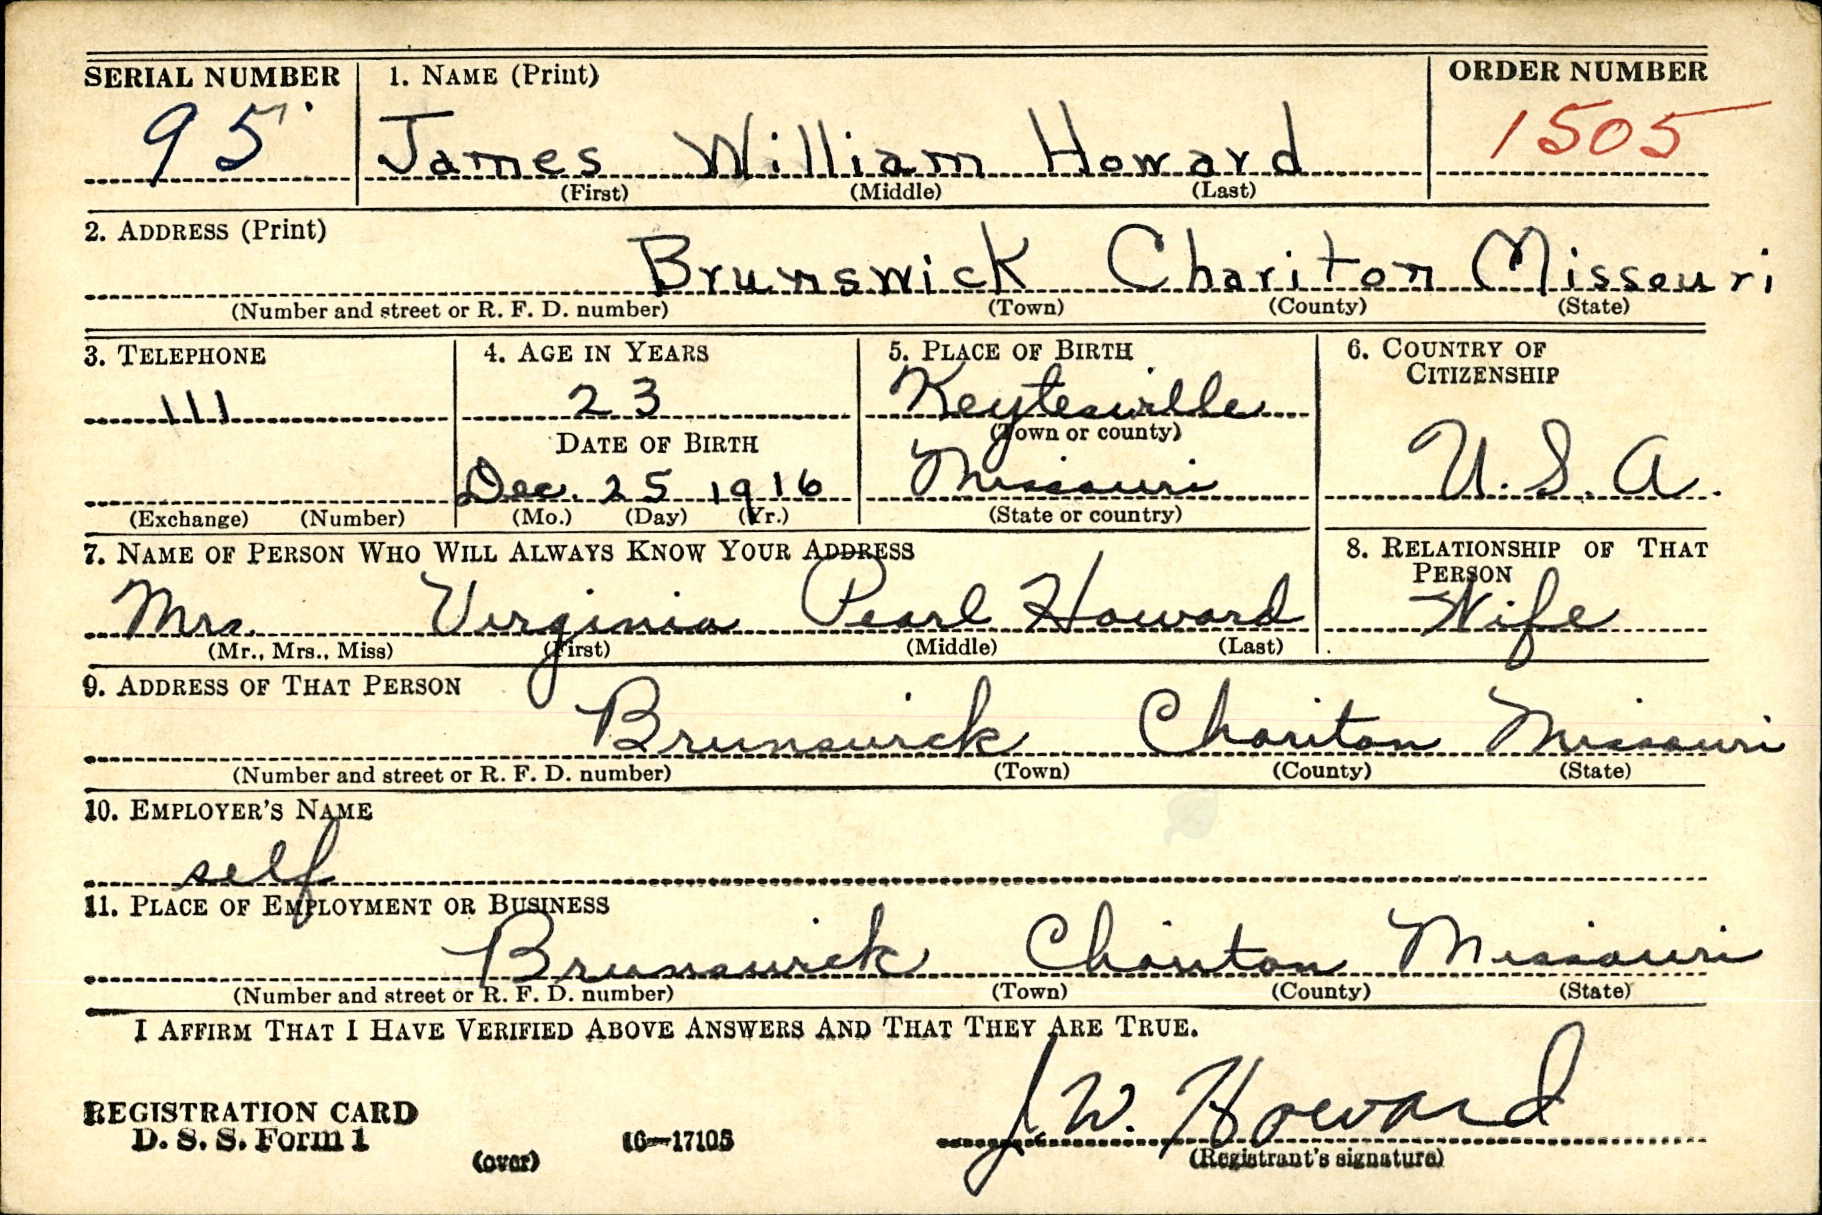 SERIAL NUMBER 1. NAME (Print) ORDER NUMBER
95 James William Howard 1505
(First) (Middle) (Last)
2. ADDRESS (Print)
Brunswick Chariton Missouri
(Number and street or R. F. D. number) (Town) (County) (State)
3. TELEPHONE 4. AGE IN YEARS 5. PLACE OF BIRTH 6. COUNTRY OF CITIZENSHIP
111 23 Keytesville
(Town or county)
DATE OF BIRTH
Dec. 25 1916 Missouri U. S. A.
(Exchange) (Number) (Mo.) (Day) (Yr.) (State or country)
7. NAME OF PERSON WHO WILL ALWAYS KNOW YOUR ADDRESS 8. RELATIONSHIP OF THAT PERSON
Mrs. Virginia Pearl Howard Wife
(Mr., Mrs., Miss) (First) (Middle) (Last)
9. ADDRESS OF THAT PERSON
Brunswick Chariton Missouri
(Number and street or R. F. D. number) (Town) (County) (State)
10. EMPLOYER'S NAME
self
11. PLACE OF EMPLOYMENT OR BUSINESS
Brunswick Chariton Missouri
(Number and street or R. F. D. number) (Town) (County) (State)
I AFFIRM THAT I HAVE VERIFIED ABOVE ANSWERS AND THAT THEY ARE TRUE.
J. W. Howard
REGISTRATION CARD
D. S. S. Form 1 (over) 16—17105 (Registrant's signature)